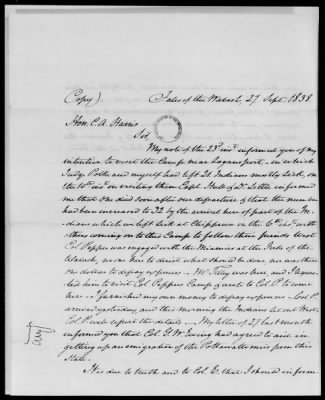 Copy)
Falls of the Wabash, 27 Sept. 1838.
Hon. C. A. Harris
Sir
My note of the 23d inst informed you of my
intention to visit the Camp near Logansport – in which
Judge Polke and myself had left 21 Indians mostly sick, on
the 10th inst on visiting them Capt Hull & Dr Little informed
me that one died soon after our departure & that the number
had been increased to 32 by the arrival here of part of the In-
dians which we left sick at Chippeway on the 6th inst with
others coming on to this Camp to follow their friends West
Col Pepper was engaged with the Miamies at the Forks of the
Wabash, no one here to direct what should be done nor was there
one dollar to defray expences – Mr was here, and I reques-
ted him to visit Col Peppers Camp & ask to Col P to come
here – I furnished my own money to defray expences – Col P.
arrived yesterday, and this morning the Indians set out West.
Col P. will report the details. – My letter of 27 last month
informed you that Col G. W. Ewing had agreed to aid in
getting up an emigration of the Pottawattamies from this
State.
It is due to truth and to Col E. that I should inform